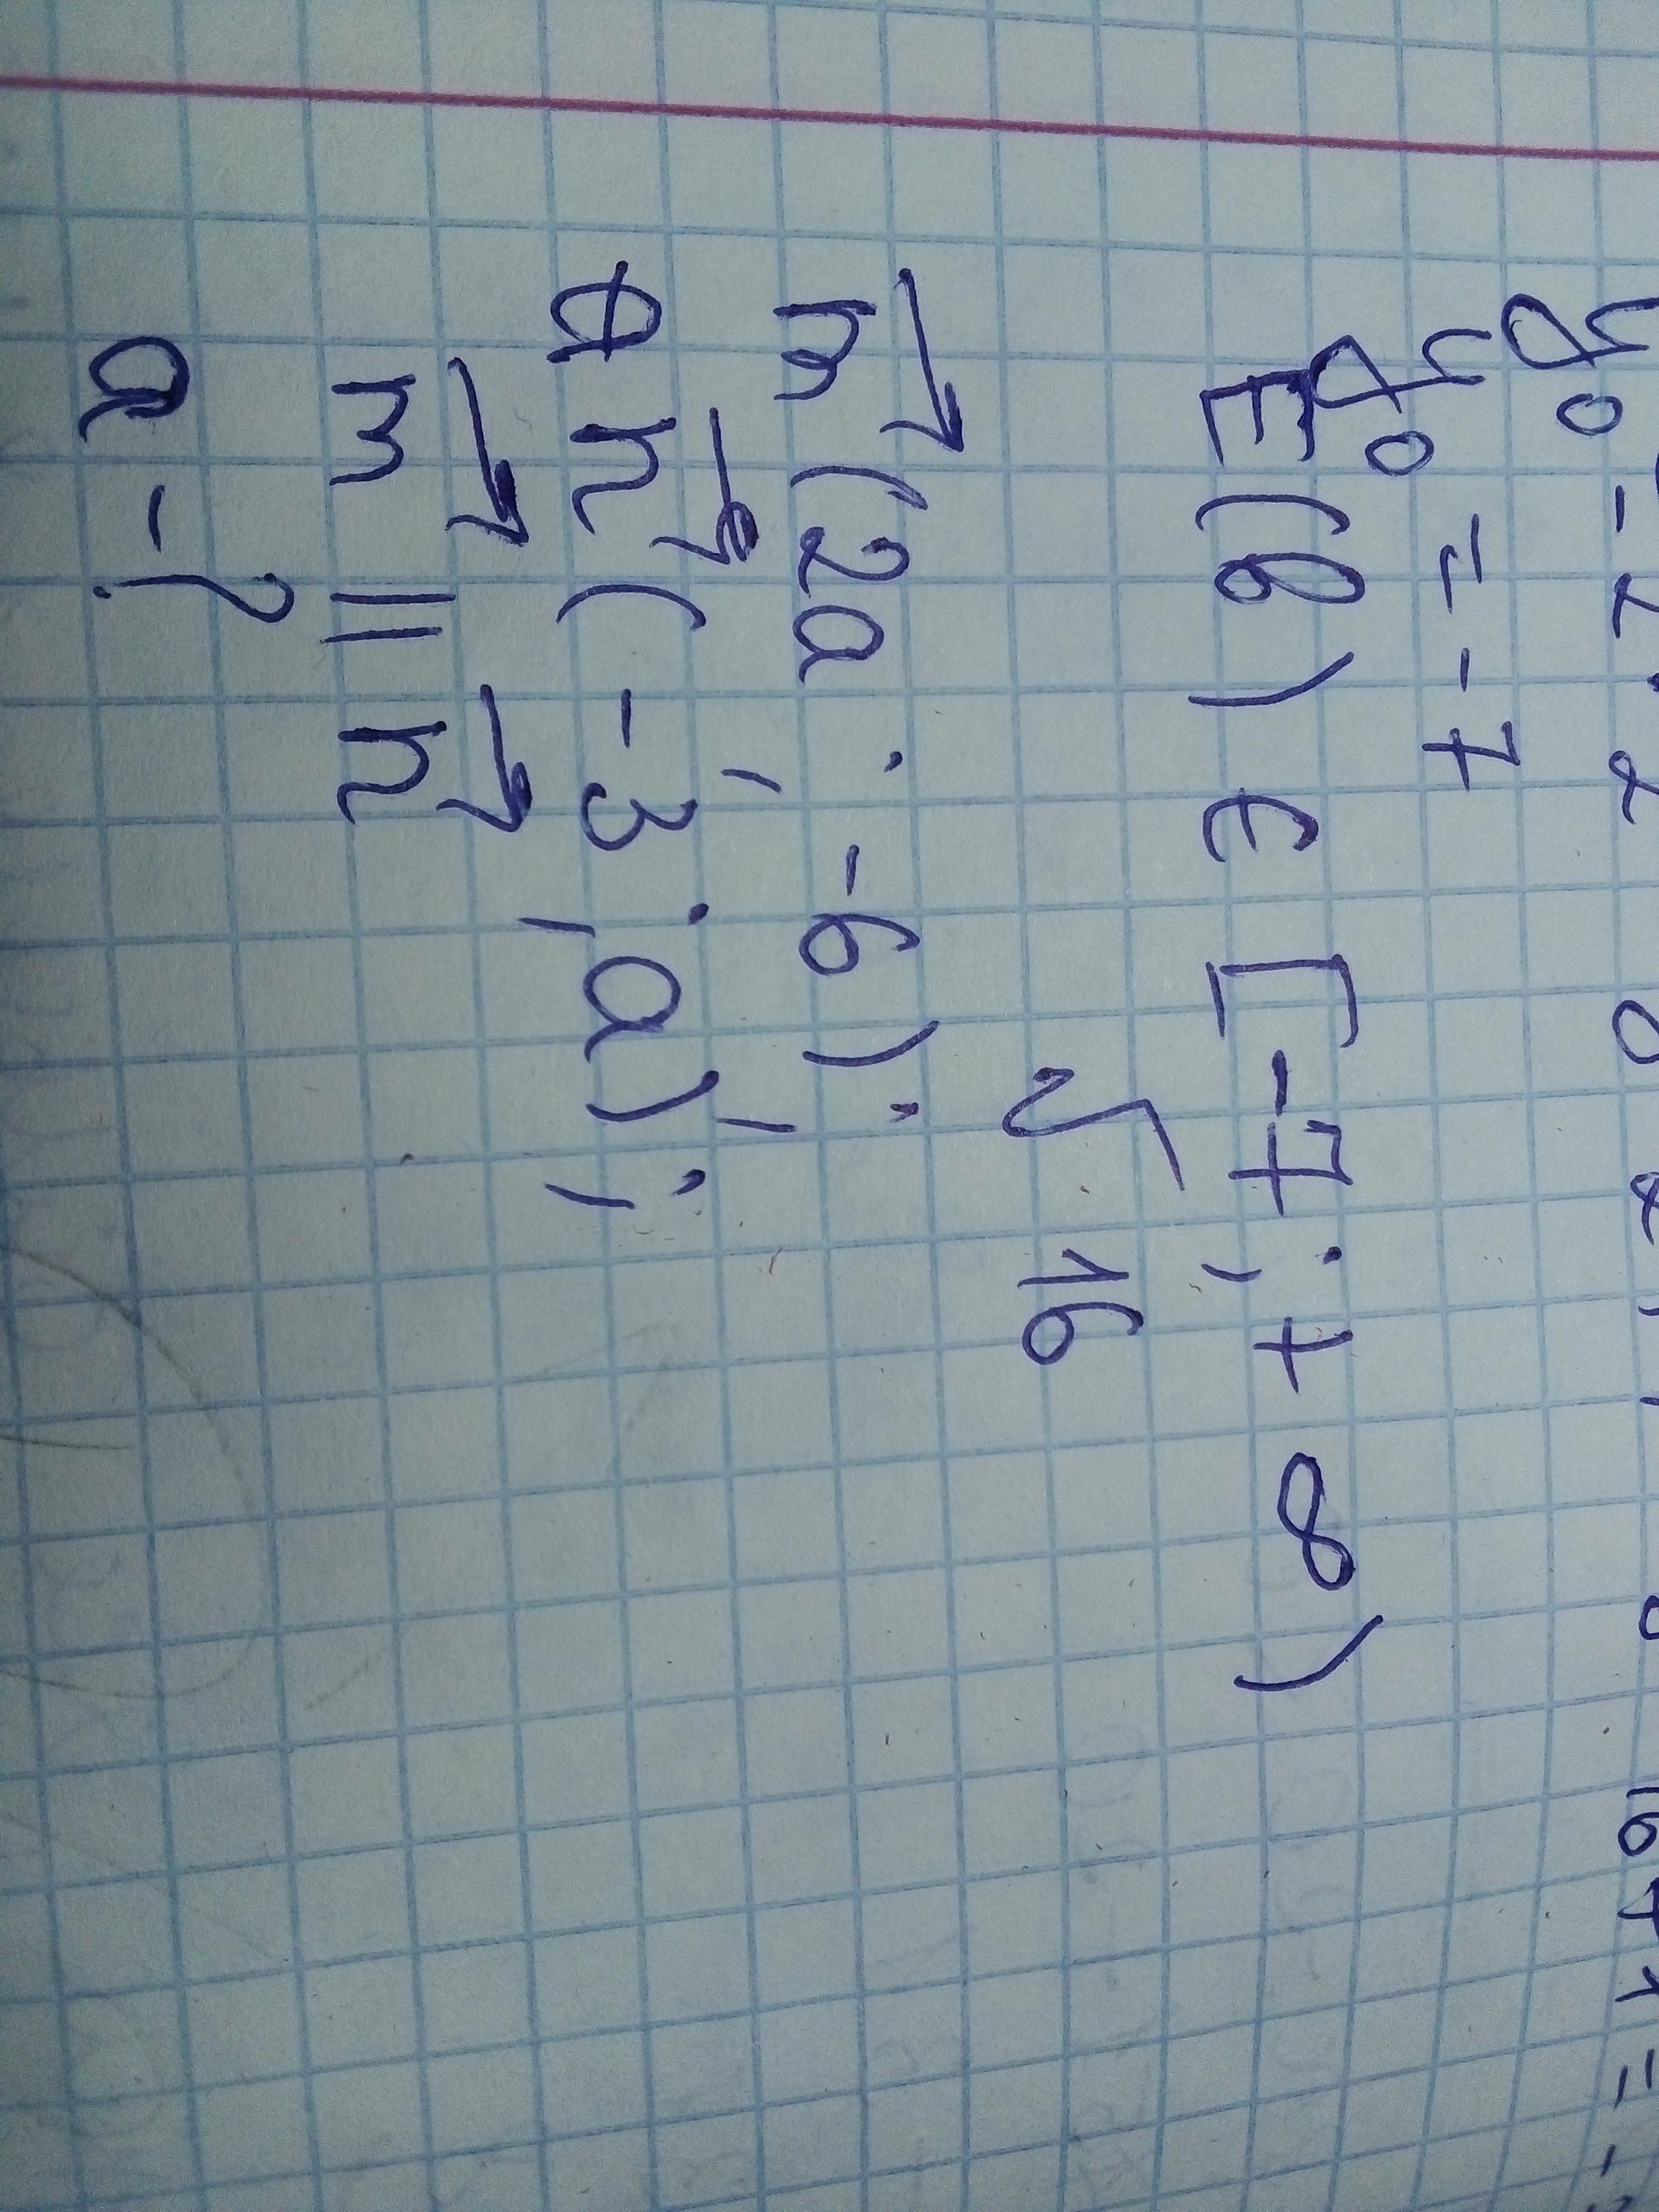 y₀ = -7
E(y) ∈ [-7; +∞)
√16
m⃗(2a; -6);
n⃗(-3; a);
m⃗ || n⃗
a-?